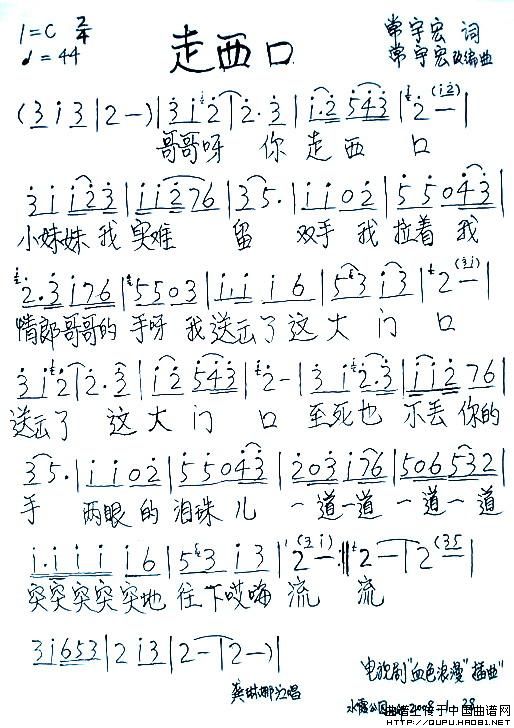 1=C 2/4
♩=44
走西口
常宇宏 词
常宇宏 改编曲
(3 i 3 | 2 — ) | 3 i 2 | 2 · 3 | i · 2 5 4 3 | 2 — |
哥哥呀 你 走 西 口
3 i i 2 3 | i i 2 7 6 | 3 5 · | i i 0 2 | 5 5 0 4 3 |
小妹妹 我 实难 留 双手 我 拉着 我
2 · 3 i 7 6 | 5 5 0 3 | i · i i 6 | 5 3 i 3 | 2 — |
情郎哥哥的 手呀 我 送出了 这 大 门 口
3 i 2 | 2 · 3 | i 2 5 4 3 | 2 — | 3 i 2 · 3 | i i 2 7 6 |
送出了 这 大 门 口 至死也 不丢 你的
3 5 · | i i 0 2 | 5 5 0 4 3 | 2 0 3 i 7 6 | 5 0 6 5 3 2 |
手 两眼 的 泪珠 儿 一道一道 一道一道
i · i i i i 6 | 5 3 i 3 | 2 — :|| 2 — | 2 (3 5
突突突突突地 往下哎嗨 流 流
3 i 6 5 3 | 2 i 3 | 2 — | 2 — ) |
龚琳娜演唱
电视剧"血色浪漫"插曲
曲谱上传于中国曲谱网
HTTP://QUPU.HAO81.NET